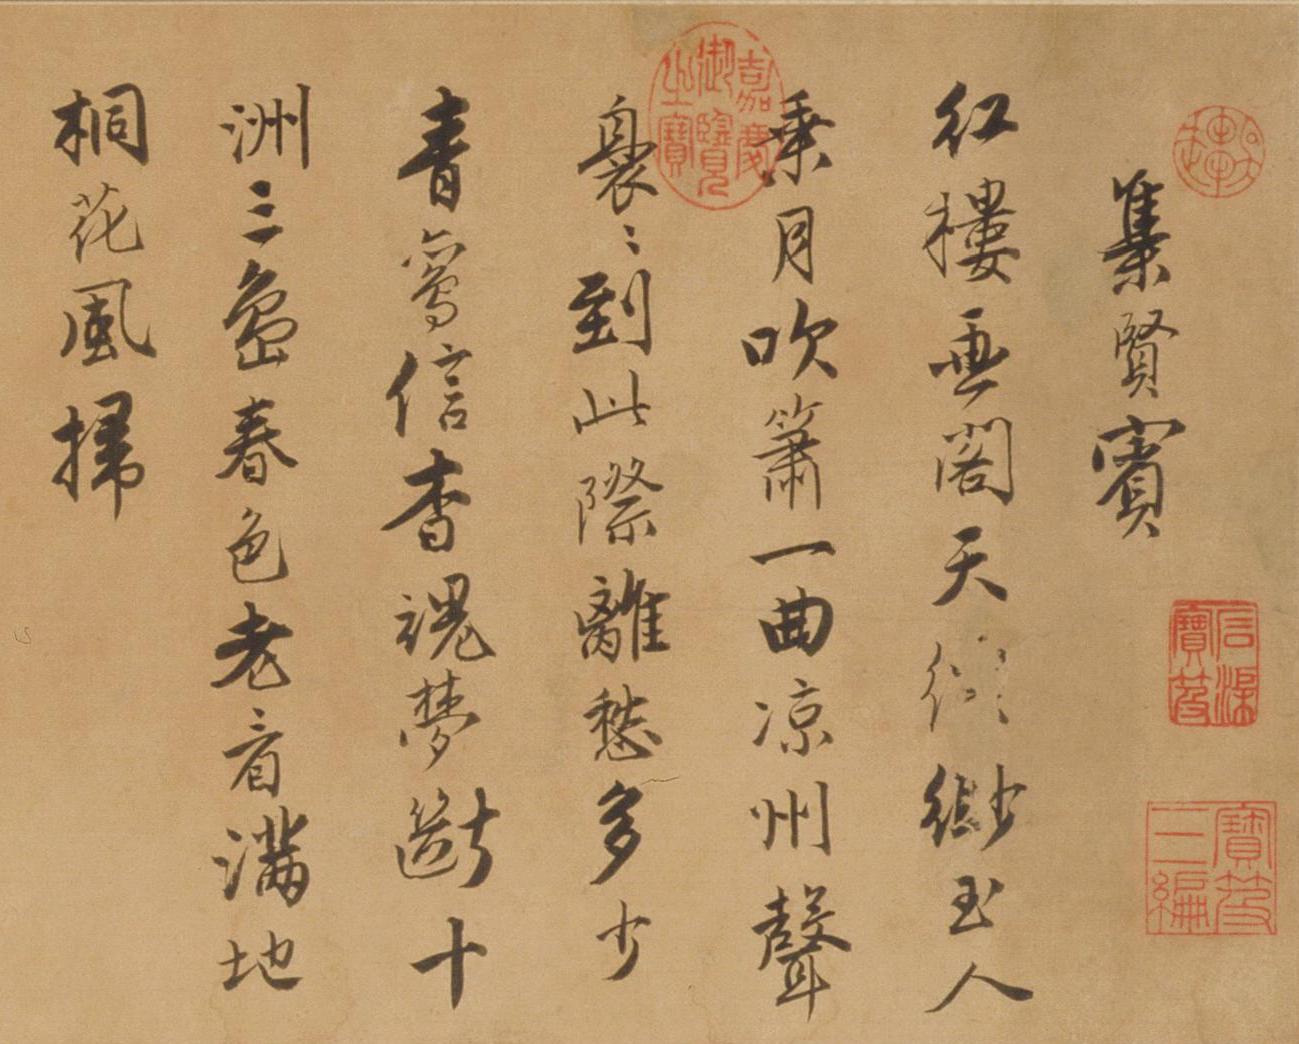 集賢賓
紅樓畫閣天縹緲玉人
乘月吹簫一曲凉州聲
裊〻到此際離愁多少
青鸞信杳魂夢斷十
洲三島春色老看滿地
桐花風掃
嘉慶御覽之寶
石渠寶笈
寶笈三編